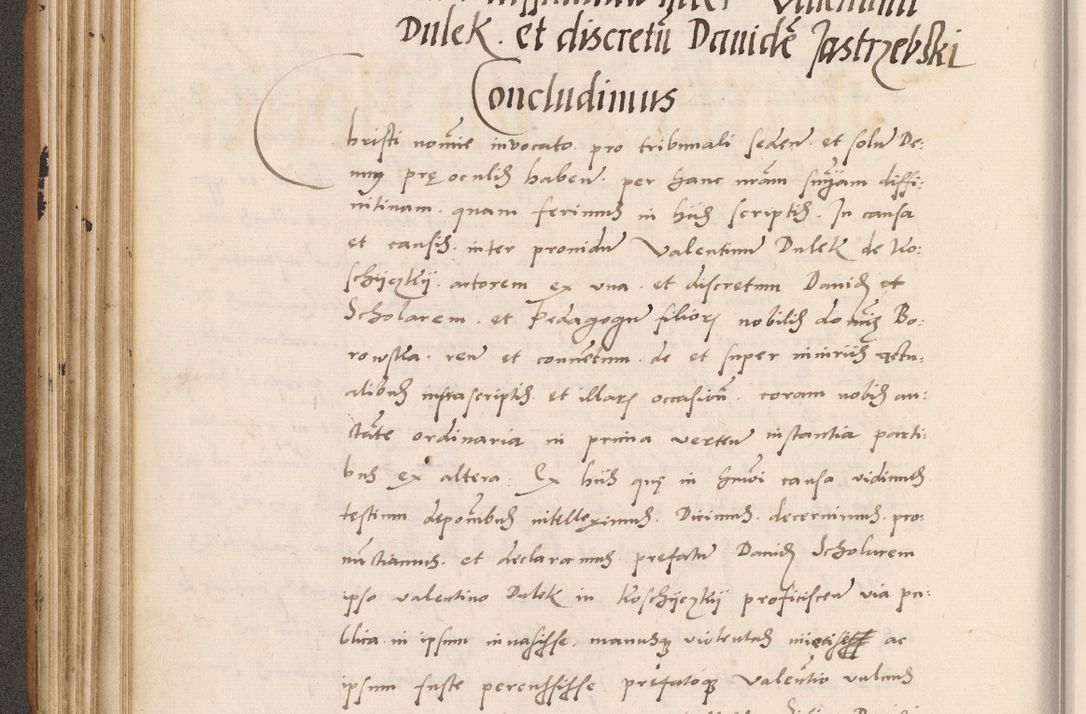 Dulek. et discretũ Dauidẽ Jastrzebski
Concludimus
hristi noĩe invocato pro tribunali seden̄ et solũ De:
um prę oculis haben̄. per hanc nrãm snĩam diffi:
nitivam. quam ferimus in hiis scriptis. In causa
et causis. inter providũ Valentinũ Dulek de Ko:
schyczky. actorem ex una. et discretum Davidẽ
Scholarem. et Pedagogũ filiorũ nobilis domini Bo:
rowska. reũ et conventum. de et super iniuriis
alibus infrascriptis. et illarũ occasioñ. coram nobis au:
ctãte ordinaria in prima verteñ instantia parti:
bus ex altera. Ex hiis quę in hmõi causa vidimus
testium deponibus intelleximus. Dicimus. decernimus. pro:
nũctiamus. et declaramus prefatũ Davidẽ Scholarem
ipso valentino Dulek in Koschyczky proficisceñ via pu:
blica in ipsum invasisse. manusq̃ violentas ac
ipsum fuste percussisse. prefatoq̃ Valentio vulnus